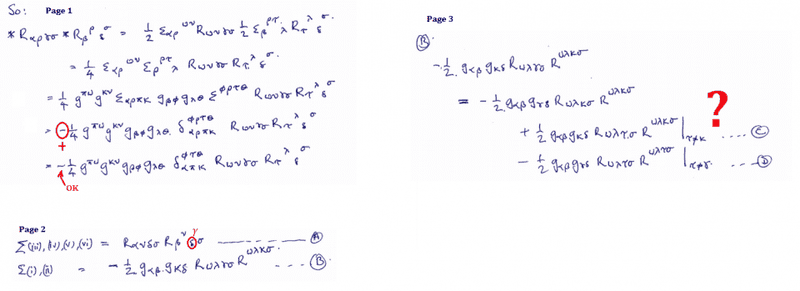 So: Page 1
*Rαργσ *Rβ^ρ_δ^σ = 1/2 εαρ^ων Rωνγσ 1/2 εβ^ρτ_λ Rτ^λ_δ^σ.
= 1/4 εαρ^ων εβ^ρτ_λ Rωνγσ Rτ^λ_δ^σ.
= 1/4 g^πω g^κν εαρπκ gβφ gλθ ε^φρτθ Rωνγσ Rτ^λ_δ^σ
= -1/4 g^πω g^κν gβφ gλθ. δ^φρτθ_αρπκ Rωνγσ Rτ^λ_δ^σ
+
= -1/4 g^πω g^κν gβφ gλθ δ^φτθ_απκ Rωνγσ Rτ^λ_δ^σ
OK
Page 2
γ
Σ(iii),(iv),(v),(vi) = Rανδσ Rβ^ν_δ^σ ---- (A)
Σ(i),(ii) = -1/2 gαβ. gκδ Rωλγσ R^ωλκσ. --- (B)
Page 3
(B)
-1/2. gαβ gκδ Rωλγσ R^ωλκσ
= -1/2. gαβ gγδ Rωλκσ R^ωλκσ
?
+ 1/2 gαβ gκδ Rωλτσ R^ωλκσ |τ≠κ .... (C)
- 1/2 gαβ gγδ Rωλτσ R^ωλτσ |τ≠γ. ... (D)